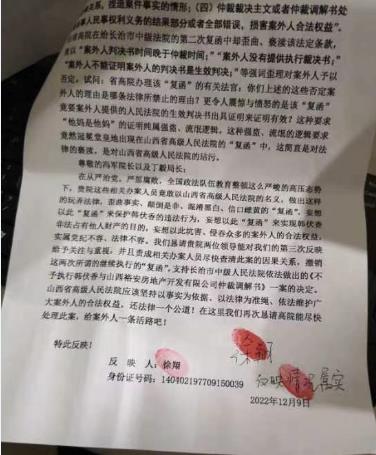 捏造案件事实的情形;(四)仲裁裁决主文或者仲裁调解书处
人民事权利义务的结果部分或者全部错误,损害案外人合法权益”。
高院在给长治市中级人民法院的第二次复函中却歪曲、亵渎该法定条款,
以“案外人判决书时间晚于仲裁时间”;“案外人没有提供执行裁定书”;
“案外人不能证明案外人的判决书是生效判决书”;等强词歪理对案外人予以
否定。试问:省高院办理该“复函”的有关法官,你们上述的这些否定案
外人的理由是哪条法律所禁止的理由?更令人震惊与愤怒的是该“复函”
竟要案外人提供的人民法院的生效判决书出具证明来证明有效?这种要求
“他妈是他妈”的证明纯属强盗、流氓逻辑。这种强盗、流氓的逻辑要求
竟然冠冕堂皇地出现在山西省高级人民法院的“复函”中,这简直是对法
律的亵渎,是对山西省高级人民法院的玷污。
尊敬的冯军院长以及丁毅局长:
在从严治党、严厉腐败、全国政法队伍教育整顿这么严峻的高压态势
下,贵院这些相关办案人员竟敢以山西省高级人民法院的名义,做出这样
的玩弄法律、歪曲事实、颠倒是非、混淆黑白、信口雌黄的“复函”,妄想
以此“复函”来保护韩伏香的违法行为,妄想以此“复函”来实现韩伏香
非法占有他人财产的目的,妄想以此坑害、侵吞众多的案外人的合法权益,
实属党纪不容、法律不容。我们恳请贵院两位领导能对我们的第三次反映
给予关注与重视,并且责令相关办案人员尽快查清此案的因果关系,撤销
这两次所谓的继续执行的“复函”,支持长治市中级人民法院依法做出的《不
予执行韩伏香与山西裕安房地产开发有限公司仲裁调解书》一案的决定。
山西省高级人民法院应该坚持以事实为依据、以法律为准绳、依法维护广
大案外人的合法权益,还法律一个公道!在这里我们再次恳请高院能尽快
处理此案,给案外人一条活路吧!
特此反映!
徐翔
反 映 人:徐翔
反映情况属实
身份证号码:140402197709150039
2022年12月9日